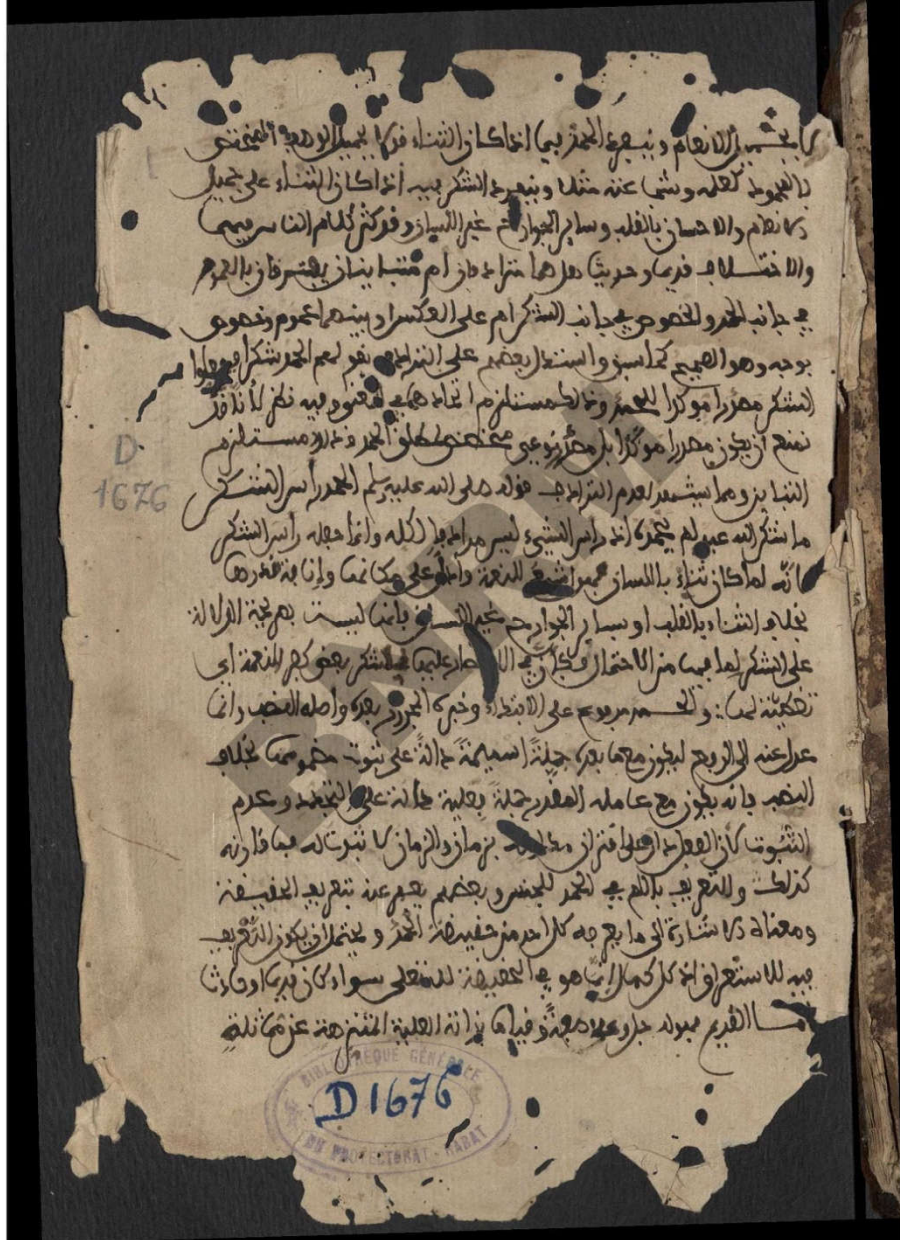 الإنعام وينفرد الحمد فيما إذا كان الثناء
كالعلم ونشأ عنه مثلا وينفرد الشكر فيه إذا كان الثناء على جميل
الإنعام والإحسان بالقلب وسائر الجوارح غير اللسان وقد كثر كلام الناس فيهما
والاختلاف قديما وحديثا هل هما مترادفان أم متباينان يفترقان بالعموم
في جانب الحمد والخصوص في جانب الشكر أم على العكس أو بينهما عموم وخصوص
بوجه وهو الصحيح كما سبق واستدل بعضهم على الترادف بقولهم الحمد شكرا
الشكر مصدرا مؤكدا للحمد وذلك مستلزم اتحادهما في المعنى وفيه نظر لأنا قد
نمنع أن يكون مصدرا مؤكدا بل مصدر نوعي الحمد مستلزم
التباين ومما يشهد لعدم الترادف قوله صلى الله عليه وسلم الحمد رأس الشكر
ما شكر الله عبد لم يحمده إذ رأس الشيء ليس مرادفا لكله وإنما جعله رأس الشكر
لأنه لما كان ثناء باللسان أشيع للنعمة وأدل على مكانها
بخلاف الثناء بالقلب أو بسائر الجوارح غير اللسان فإنها ليست بصريحة الدلالة
على الشكر لما فيها من الاحتمال فكان في في الشكر يعني كفر للنعمة أي
تغطية لها والحمد مرفوع على الابتداء وخبره المجرور بعده وأصله النصب وإنما
عدل عنه إلى الرفع ليكون مع ما بعده جملة اسمية دالة على ثبوت مضمونها بخلاف
النصب فإنه يكون مع عامله المقدر جملة فعلية دالة على التجدد وعدم
الثبوت لأن الفعل دال على اقتران بزمان والزمان لا ثبوت له فما قارنه
كذلك والتعريف باللام في الحمد للجنس وبعضهم يعبر عنه بتعريف الحقيقة
ومعناه الإشارة إلى ما يعرفه كل أحد من حقيقة الحمد ويحتمل أن يكون التعريف
فيه للاستغراق إذ كل كمال إنما هو في الحقيقة لله تعالى سواء كان قديما أو حادثا
أما القديم فهو له جل وعلا بذاته العلية المتنزهة عن مماثلة
D
1676
BIBLIOTHÈQUE GÉNÉRALE
D 1676
DU PROTECTORAT - RABAT
BNRM